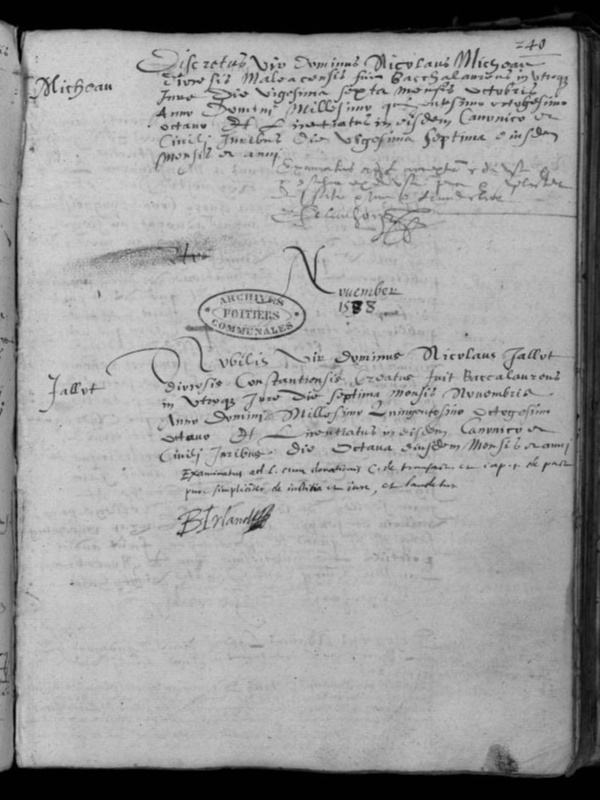 240
Micheau
Discretus Vir Dominus Nicolaus Micheau
diocesis Maleacensis fuit Bacchalaureus in utroq
Jure Die vigesima sexta mensis octobris
Anno Domini Millesimo quingentesimo octogesimo
octavo Et Licentiatus in eisdem Canonico et
Civili Juribus Die vigesima septima eiusdem
mensis et anni
Examinatus ad l.
November
1588
ARCHIVES
POITIERS
COMMUNALES
Jallot
Nobilis Vir Dominus Nicolaus Jallot
diocesis Constantiensis Creatus fuit Baccalaureus
in utroq Jure Die septima mensis Novembris
Anno Domini Millesimo Quingentesimo octogesimo
octavo Et Licentiatus in eisdem Canonico et
Civili Juribus Die octava eiusdem Mensis et anni
Examinatus ad l. cum donationis C. de transact. et cap. 1. de pact
pure simpliciter de iustitia et iure, et laudetur
BIrland